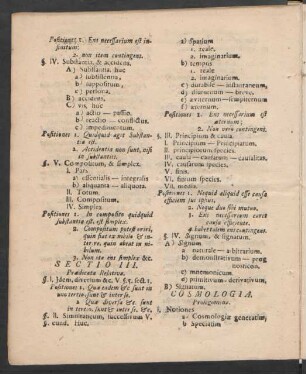 Positiones 1. Ens necessarium est infinitum:
2. non item contingens.
§. IV. Substantia, & accidens.
A) Substantia. huc
a) subsistentia,
b) suppositum,
c) persona.
B) accidens.
C) vis, huc
a) actio — passio.
b) reactio — conflictus.
c) impedimentum.
Positiones 1. Quidquid agit Substantia est.
2. Accidentia non sunt, nisi in substantiis.
§. V. Compositum, & simplex.
I. Pars
a) essentialis — integralis
b) aliquanta — aliquota.
II. Totum.
III. Compositum.
IV. Simplex.
Positiones 1. In composito quidquid substantia est, est simplex.
2. Compositum potest oriri, quam fiat ex nihilo & interire, quin abeat in nihilum.
3. Non ita ens simplex &c.
SECTIO III.
Prædicata Relativa.
§. I. Idem, diversum &c. V. §. 5. sect. 1.
Positiones 1. Quæ eadem &c sunt in uno tertio, sunt & inter se.
2. Quæ diversa &c. sunt in tertio, sunt & inter se, &c.
§. II. Simultaneum, successivum V.
§. eund. Huc.
a) Spatium
1. reale.
2. imaginarium.
b) tempus
1. reale
2. imaginarium.
c) durabile — instantaneum,
d) planetarium — breve,
e) æviternum — sempiternum
f) æternum.
Positiones 1. Ens necessarium est æternum:
2. Non vero contingens.
§. III. Principium & causa.
I. Principium — Principiatum.
II. principiorum species.
III. causa — causatum — causalitas.
IV. causarum species.
V. finis.
VI. finium species.
VII. medium.
Positiones 1. Nequid aliquid esse causa efficiens sui ipsius.
2. Neque duo sibi mutuo.
3. Ens necessarium caret causa efficiente.
4. habet talem ens contingens.
§. IV. Signum, & signatum.
A) Signum
a) naturale — arbitrarium,
b) demonstrativum — prognosticon.
c) mnemonicum.
d) primitivum — derivativum,
B) Signatum.
COSMOLOGIA.
Prolegomena.
I. Notiones
a) Cosmologiæ generatim,
b) Speciatim